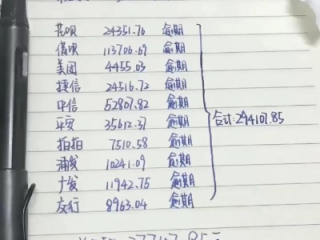 花呗 24351.76 逾期
借呗 113706.69 逾期
美团 4455.03 逾期
捷信 24516.72 逾期
中信 52807.82 逾期
平安 35612.37 逾期
拍拍 7510.58 逾期
浦发 10241.09 逾期
广发 11942.75 逾期
交行 8963.04 逾期
合计:294107.85